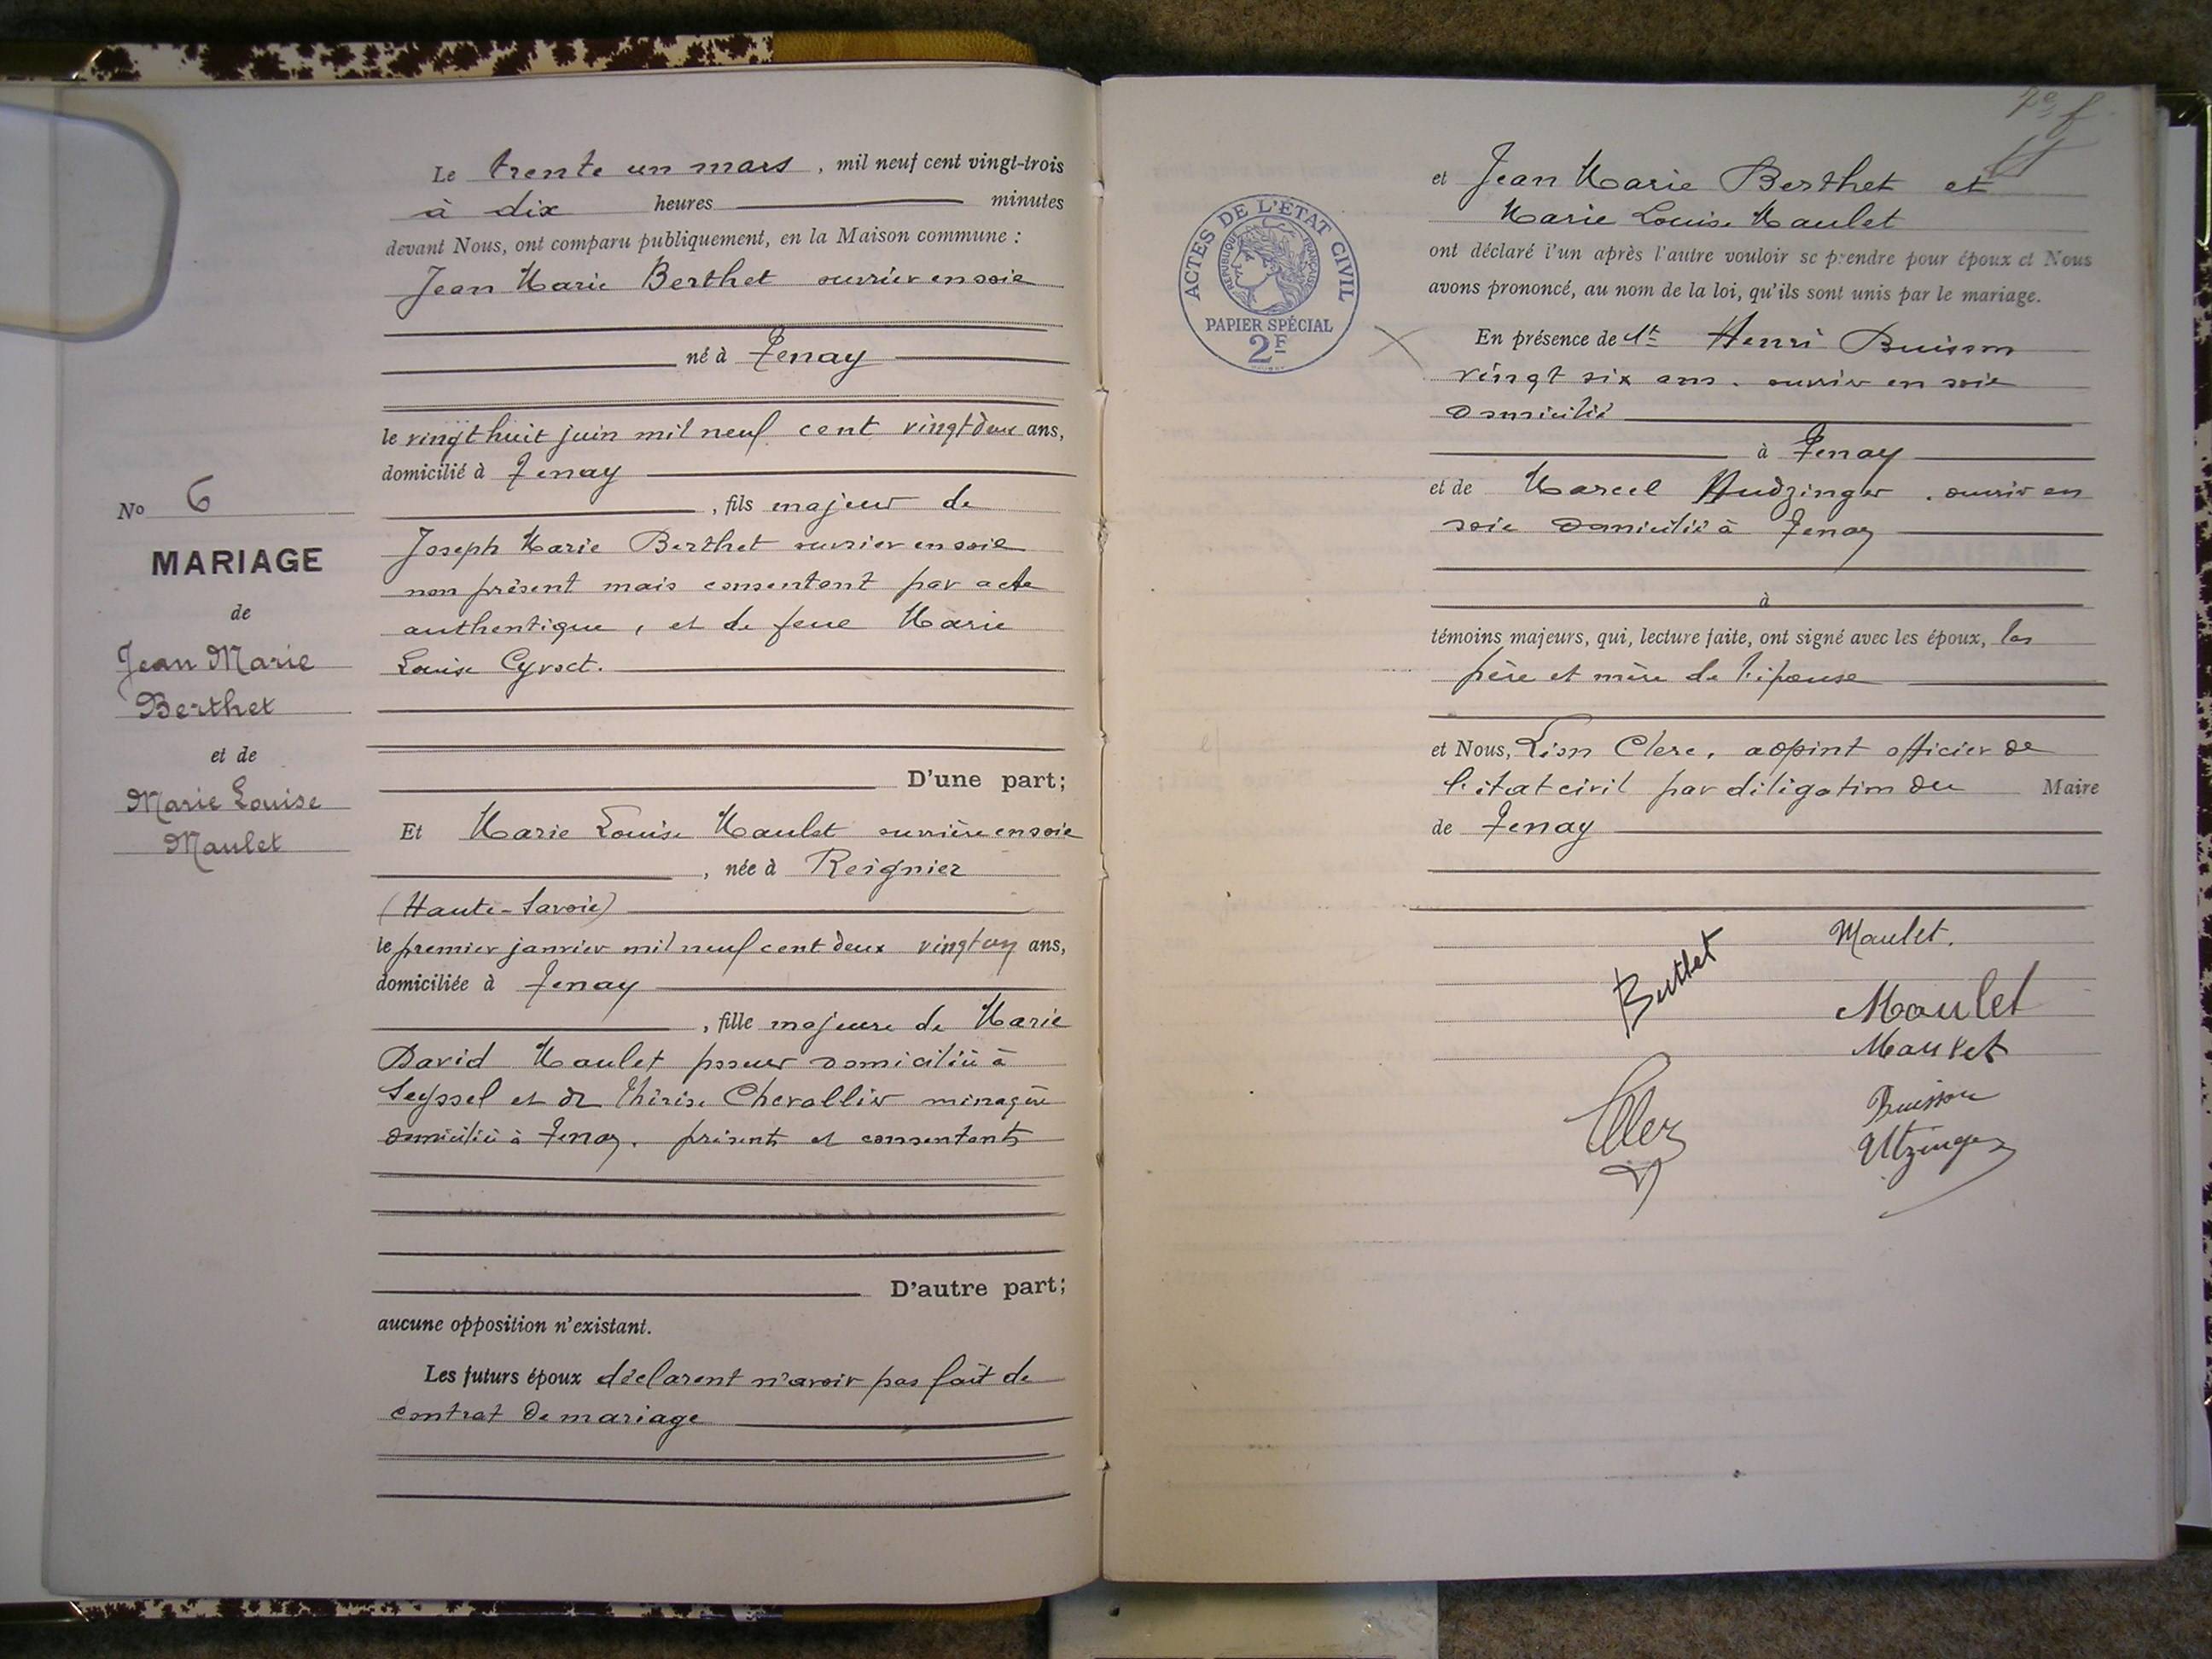 No 6
MARIAGE
de
Jean Marie
Berthet
et de
Marie Louise
Maulet
Le trente un mars, mil neuf cent vingt-trois
à dix heures minutes
devant Nous, ont comparu publiquement, en la Maison commune :
Jean Marie Berthet ouvrier en soie
né à Tenay
le vingt huit juin mil neuf cent vingt deux ans,
domicilié à Tenay
, fils majeur de
Joseph Marie Berthet ouvrier en soie
non présent mais consentant par acte
authentique, et de feue Marie
Louise
D'une part;
Et Marie Louise Maulet ouvrière en soie
, née à Reignier
(Haute-Savoie)
le premier janvier mil neuf cent deux vingt un ans,
domiciliée à Tenay
, fille majeure de Marie
David Maulet poseur domicilié à
Seyssel et de Thérèse Chevallier ménagère
domicilié à Tenay. présents et consentants
D'autre part;
aucune opposition n'existant.
Les futurs époux déclarent n'avoir pas fait de
contrat de mariage
7e f
ACTES DE L'ÉTAT CIVIL
RÉPUBLIQUE FRANÇAISE
PAPIER SPÉCIAL
2F
et Jean Marie Berthet et
Marie Louise Maulet
ont déclaré l'un après l'autre vouloir se prendre pour époux et Nous
avons prononcé, au nom de la loi, qu'ils sont unis par le mariage.
En présence de Henri Buisson
vingt six ans. ouvrier en soie
domicilié
à Tenay
et de Marcel Hudzinger. ouvrier en
soie domicilié à Tenay
à
témoins majeurs, qui, lecture faite, ont signé avec les époux, les
père et mère de l'épouse
et Nous, Léon Clerc, adjoint officier de
l'état civil par déligation du Maire
de Tenay
Maulet.
Berthet
Maulet
Maulet
Buisson
Utzinger